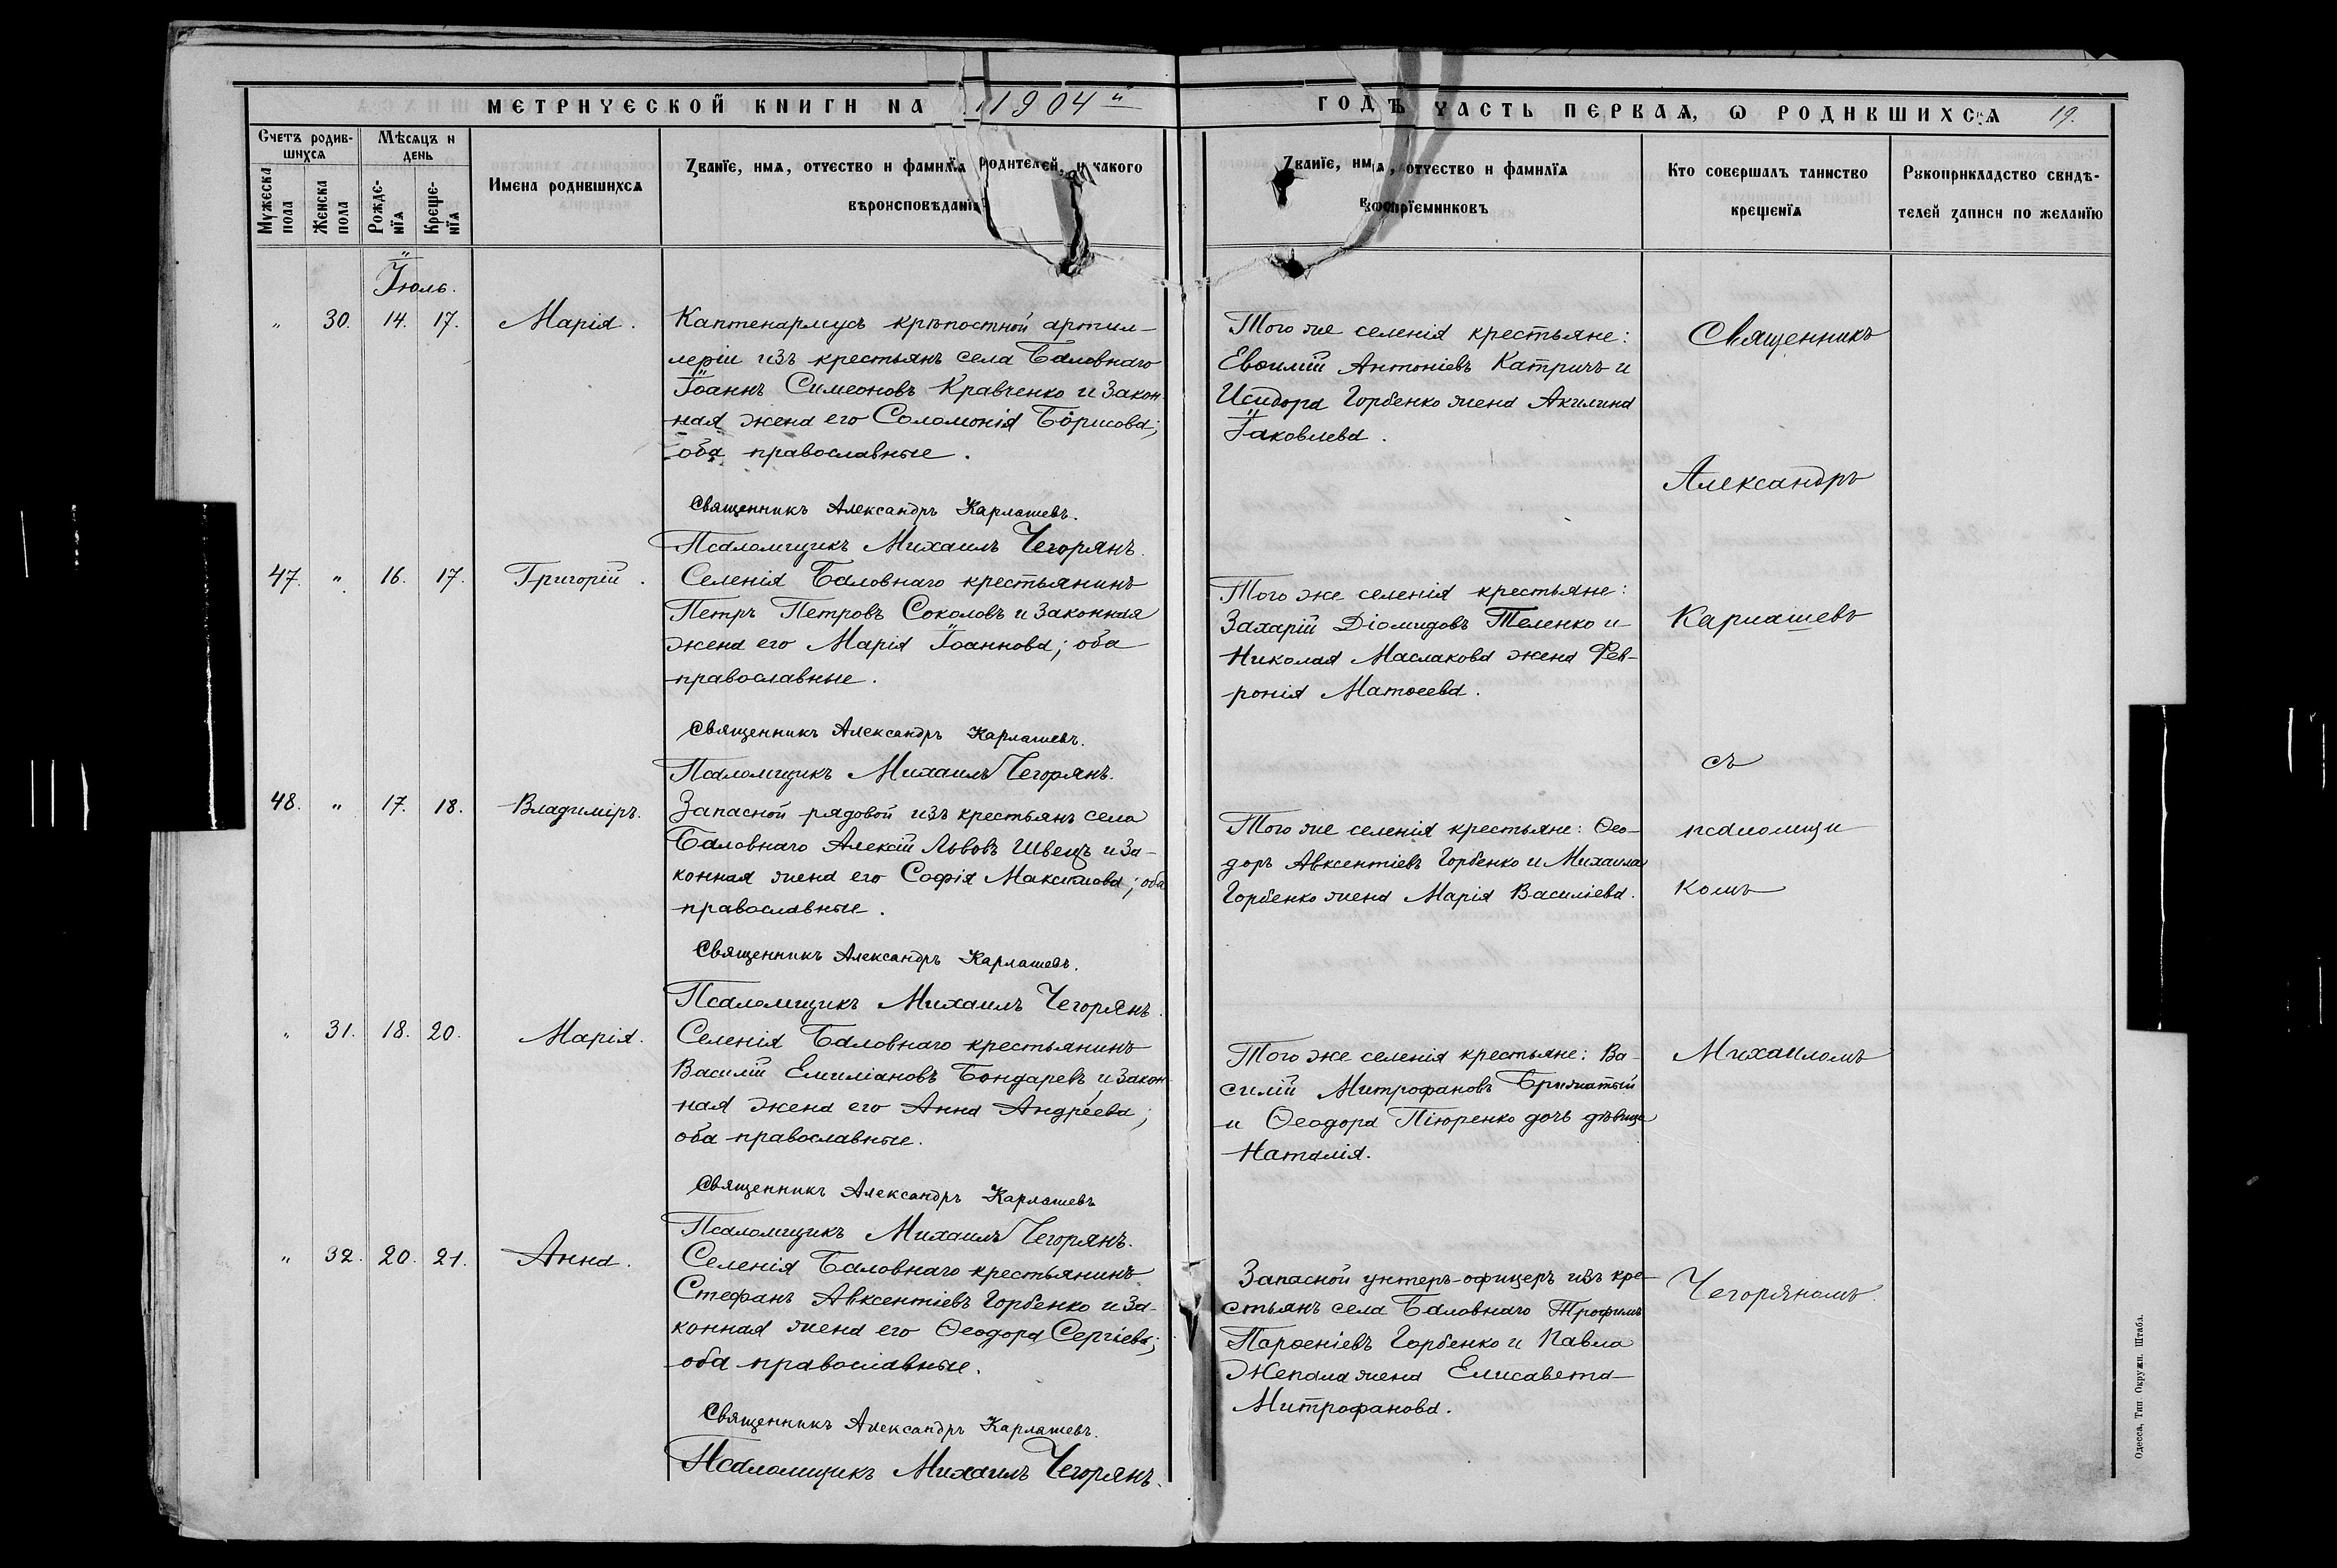 МЕТРИЧЕСКОЙ КНИГИ НА 1904й
ГОДЪ ЧАСТЬ ПЕРВАЯ, Ѡ РОДИВШИХСЯ 19.
Счетъ родив-
шихся
Мѣсяцъ и
день
Мужеска
пола
Женска
пола
Рожде-
нїя
Креще-
нїя
Имена родившихся
Званїе, имя, отчество и фамилїя родителей, и какого
вѣроисповѣданїя
Званїе, имя, отчество и фамилїя
воспрїемниковъ
Кто совершалъ таинство
крещенїя
Рукоприкладство свидѣ-
телей записи по желанїю
Іюль.
„ 30. 14. 17. Марія.
Каптенармусъ крѣпостной артил-
леріи изъ крестьянъ села Баловнаго
Іоаннъ Симеоновъ Кравченко и закон-
ная жена его Соломонія Борисова;
оба православные.
Священникъ Александръ Карлашевъ.
Псаломщикъ Михаилъ Чегорянъ.
Того же селенія крестьяне:
Евѳимій Антоніевъ Катричъ и
Исидора Горбенко жена Акилина
Іаковлева.
47. „ 16. 17. Григорій.
Селенія Баловнаго крестьянинъ
Петръ Петровъ Соколовъ и законная
жена его Марія Іоаннова; оба
православные.
Священникъ Александръ Карлашевъ.
Псаломщикъ Михаилъ Чегорянъ.
Того же селенія крестьяне:
Захарій Діомидовъ Теленко и
Николая Маслакова жена Фев-
ронія Матѳеева.
48. „ 17. 18. Владиміръ.
Запасной рядовой изъ крестьянъ села
Баловнаго Алексій Львовъ Швецъ и за-
конная жена его Софія Максимова; оба
православные.
Священникъ Александръ Карлашевъ.
Псаломщикъ Михаилъ Чегорянъ.
Того же селенія крестьяне: Ѳео-
доръ Авксентіевъ Горбенко и Михаила
Горбенко жена Марія Василіева.
„ 31. 18. 20. Марія.
Селенія Баловнаго крестьянинъ
Василій Емиліановъ Бондаревъ и закон-
ная жена его Анна Андреева;
оба православные.
Священникъ Александръ Карлашевъ
Псаломщикъ Михаилъ Чегорянъ.
Того же селенія крестьяне: Ва-
силій Митрофановъ
и Ѳеодора Піюренко дочь дѣвица
Наталія.
„ 32. 20. 21. Анна.
Селенія Баловнаго крестьянинъ
Стефанъ Авксентіевъ Горбенко и за-
конная жена его Ѳеодора Сергіева;
оба православные.
Священникъ Александръ Карлашевъ.
Псаломщикъ Михаилъ Чегорянъ.
Запасной унтеръ-офицеръ изъ кре-
стьянъ села Баловнаго Трофимъ
Парѳеніевъ Горбенко и Павла
Жепала жена Елисавета
Митрофанова.
Священникъ
Александръ
Карлашевъ
съ
псаломщи
комъ
Михаиломъ
Чегоряномъ.
Одесса, Тип Окружн. Штаба.